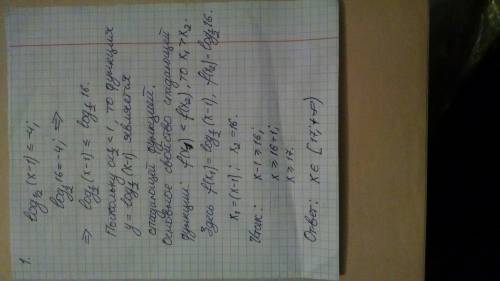 1. log₁/₂ (x-1) ≤ -4;
log₁/₂ 16 = -4; ⇒
⇒ log₁/₂ (x-1) ≤ log₁/₂ 16.
Поскольку 0<½<1, то функция
y = log₁/₂ (x-1) является
спадающей функцией.
Основное свойство спадающей
функции: f(x₁) < f(x₂), то x₁ > x₂.
Здесь f(x₁) = log₁/₂ (x-1), f(x₂) = log₁/₂ 16.
x₁ = (x-1); x₂ = 16.
Итак: x-1 ≥ 16;
x ≥ 16+1;
x ≥ 17.
Ответ: x ∈ [17; +∞)